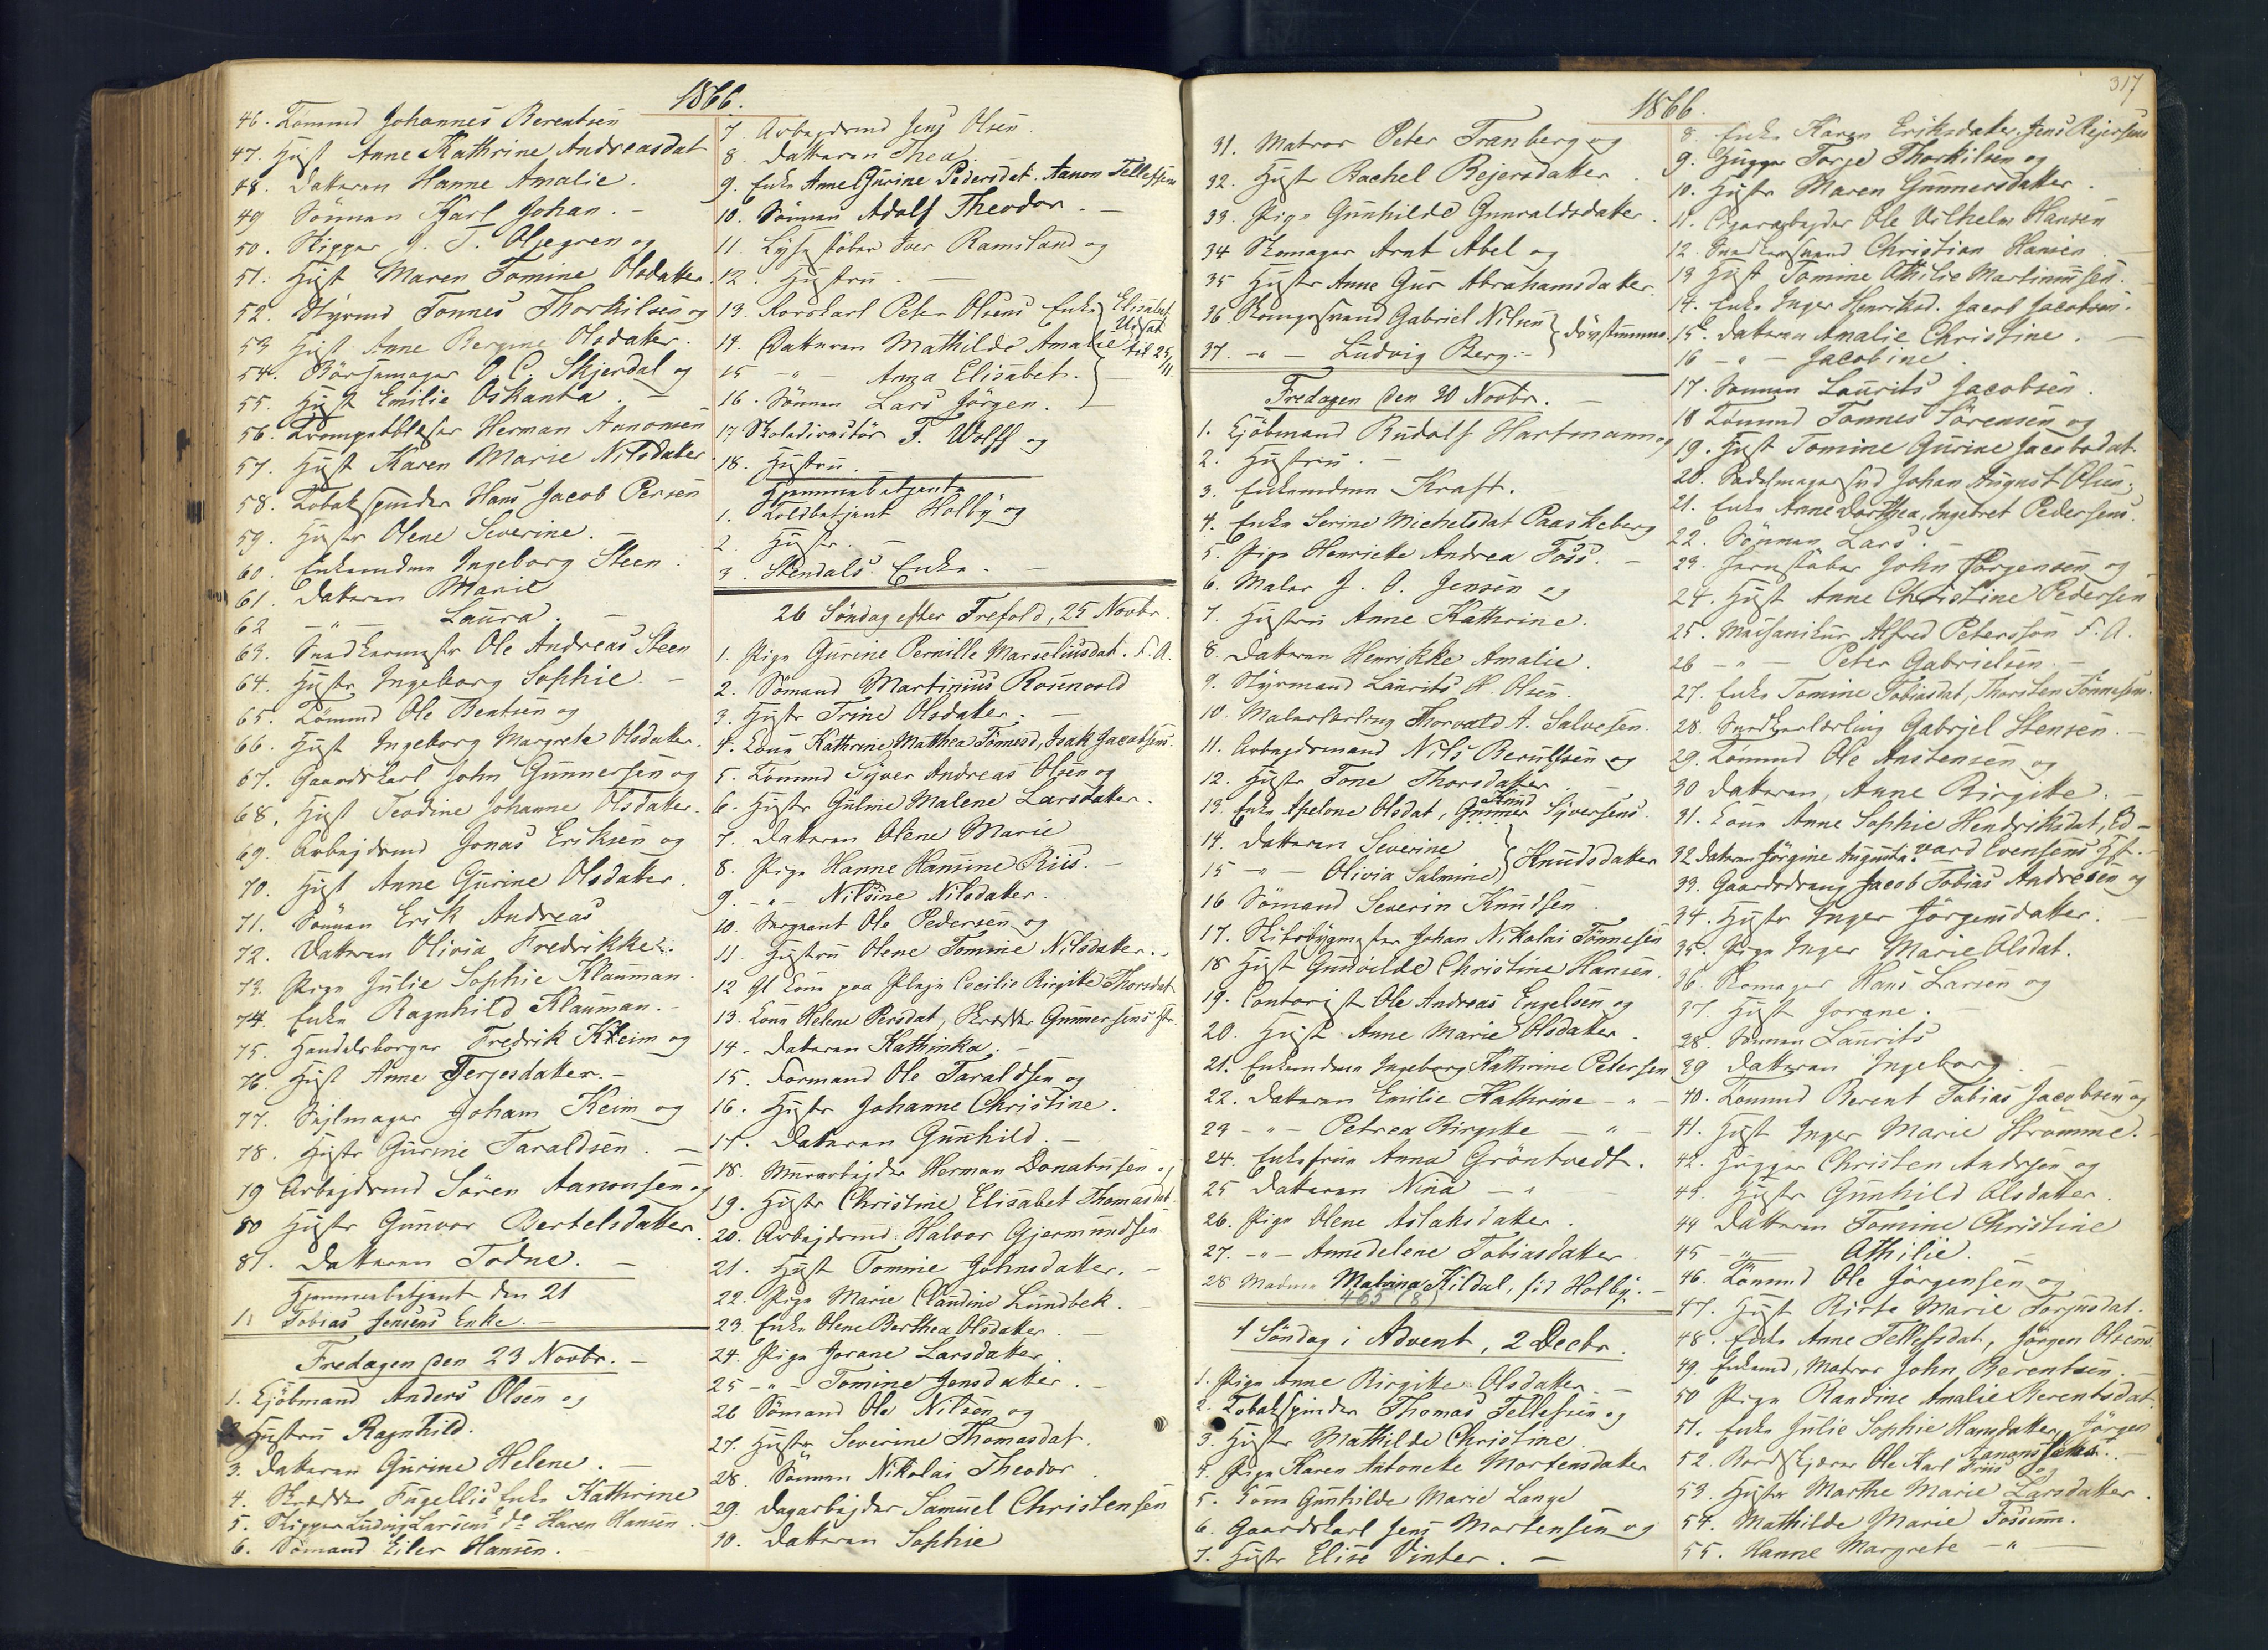 1866.
46. Tømmd Johannes Berentsen
47. Hust Anne Kathrine Andreasdat
48. Datteren Hanne Amalie.
49 Sönnen Karl Johan. -
50. Skipper J. T. Oljegren og
51. Hust Maren Tomine Olsdatter.
52. Styrmd Tonnes Thorkilsen og
53 Hust Anne Bergine Olsdatter.
54. Börsemager O. C. Skjerdal og
55. Hust Emilie Oskanta. -
56. Trompetblæser Herman Aanonsen
57. Hust Karen Marie Nilsdatter
58. Tobakspinder Hans Jacob Persen
59. Hustr Olene Severine. -
60. Enkemadm Ingeborg Steen.
61. Datteren Marie
62 - " - Laura. -
63. Snedkermestr Ole Andreas Steen
64. Hustr Ingeborg Sophie. -
65. Tömmd Ole Bentsen og
66. Hust Ingeborg Margrete Olsdatter.
67. Gaardskarl John Gunnersen og
68. Hust Teodine Johanne Olsdatter.
69. Arbejdsmd Jonas Eriksen og
70. Hust Anne Gurine Olsdatter.
71. Sönnen Erik Andreas
72. Datteren Olivia Fredrikke.
73. Pige Julie Sophie Klauman.
74. Enke Ragnhild Klauman. -
75. Handelsborger Fredrik Kleim og
76. Hust Anne Terjesdatter. -
77. Sejlmager Joham Keim og
78. Hustr Gurine Taraldsen. -
79 Arbejdsmd Sören Aanonsen og
80 Hustr Gunvor Bertelsdatter.
81. Datteren Todne. -
Hjemmebetjent den 21
1. Tobias Jensens Enke. -
Fredagen den 23 Novbr. -
1. Kjöbmand Anders Olsen og
2 Hustru Ragnhild.
3. Datteren Gurine Helene. -
4. Skrædder Engellis Enke Kathrine
5. Skipper Ludvig Larsens do Karen Hansen.
6. Sömand Eiler Hansen.
7. Arbejdsmd Jens Olsen.
8. Datteren Thea
9. Enke Anne Gurine Pedersdat. Aanon Tellefsens
10. Sönnen Adolf Theodor. -
11. Lysestöber Iver Ramsland og
12. Hustru. -
13. Korskarl Peter Olsens Enke Elisabet
14. Datteren Mathilde Amalie Udsat til 25/11.
15 - " - Anna Elisabet.
16. Sönnen Lars Jörgen.
17 Skoledirektör F. Wolff og
18. Hustru.
Hjemmebetjente
1. Toldbetjent Holby og
2. Hustr. -
3. Stendals Enke. -
26 Söndag efter Trefold, 25 Novbr.
1. Pige Gurine Pernille Marseliusdat. F. A.
2. Sömand Martinius Rosenvold
3. Hustr Trine Olsdatter. -
4. Kone Kathrine Matthea Tönnesd, Isak Jacobsens.
5. Tömmd Syver Andreas Olsen og
6. Hustr Guline Malene Larsdatter.
7. Datteren Olene Marie
8. Pige Hanne Hansine Riis. -
9. - " - Nilsine Nilsdatter.
10. Sergeant Ole Pedersen og
11. Hustru Olene Tomine Nilsdatter.
12 Gl Kone paa Pleje Cecilie Birgitte Thorsdat
13. Kone Helene Persdat, Skrædder Gunnersens Hr.
14. Datteren Kathinka. -
15. Formand Ole Taraldsen og
16. Hustr Johanne Christine.
17. Datteren Gunhild. -
18. Murarbejder Herman Donatusen og
19. Hustr Christine Elisabet Thomasdat.
20. Arbejdsmd Halvor Gjermundsen
21. Hust Tomine Johnsdatter. -
22. Pige Marie Claudine Lundbek.
23. Enke Olene Berthea Olsdatter. -
24. Pige Jorane Larsdatter.
25 - " - Tomine Jensdatter. -
26 Sömand Ole Nilsen og
27. Hustr Severine Thomasdat.
28. Sönnen Nikolai Theodor.
29. Dagarbejder Samuel Christensen
30. Datteren Sophie
317
1866
31. Matros Peter Tranberg og
32. Hustr Rachel Rejersdatter.
33. Pige Gunhilde Gunvaldsdatter.
34 Skomager Arnt Abel og
35 Hustr Anne Gur Abrahamsdatter.
36. Skomagersvend Gabriel Nilsen Dövstumme.
37. - " - Ludvig Berg. -
Fredagen den 30 Novbr. -
1. Kjöbmand Rudolf Hartmann og
2. Hustru. -
3. Enkemadm Kraft.
4. Enke Serine Michelsdat Paaskeberg
5. Pige Henriette Andrea Foss. -
6. Maler J. O. Jensen og
7. Hustru Anne Kathrine.
8. Datteren Henrikke Amalie.
9. Styrmand Laurits P. Olsen.
10. Malerlærling Thorvald A. Salvesen.
11. Arbejdsmand Nils Berulfsen og
12. Hustr Tone Thorsdatter
13. Enke Apelone Olsdat, Gunner Knud Syversens.
14. Datteren Severine Knudsdatter
15 - " - Olivia Salmine
16. Sömand Severin Knudsen.
17. Skibsbygmester Johan Nikolai Tönnesen
18 Hust Gunvilde Christine Hansen.
19. Contorist Ole Andreas Engelsen og
20. Hust Anne Marie Olsdatter.
21. Enkemadm Ingeborg Kathrine Petersen
22. Datteren Emilie Kathrine - " -
23 - " - Petrea Birgitte - " -
24. Enkefrue Anna Gröntvedt.
25 Datteren Nina - " -
26. Pige Olene Aslaksdatter.
27. - " - Annedelene Tobiasdatter
28 Madme Malvina Kildal, föd Holby. -
465 (8)
1 Söndag i Advent, 2 Decbr.
1. Pige Anne Birgitte Olsdatter. -
2. Tobakspinder Thomas Tellefsen og
3. Hustr Mathilde Christine.
4. Pige Karen Antonette Mortensdatter
5. Kone Gunhilde Marie Lange
6. Gaardskarl Jens Mortensen og
7. Hustr Elise Vinter. -
8. Enke Karen Eriksdatter, Jens Rejersens
9. Hugger Torje Thorkilsen og
10. Hustr Maren Gunnersdatter.
11. Cigararbejder Ole Vilhelm Hansen
12. Snedkersvend Christian Hansen
13 Hust Tomine Othilie Martinussen.
14. Enke Inger Henriksd. Jacob Jacobsens.
15. Datteren Amalie Christine. -
16 - " - Jacobine.
17. Sönnen Laurits Jacobsen.
18 Tømmd Tonnes Sörensen og
19. Hust Tomine Gurine Jacobsdat.
20. Sadelmagersvd Johan August Olsen.
21. Enke Anne Dorthea, Ingebret Pedersens.
22. Sönnen Lars. -
23. Jernstöber John Jörgensen og
24. Hust Anne Christine Pedersen
25. Maskanikus Alfred Petersson F. A.
26 - " - Peter Gabrielsen. -
27. Enke Tomine Tobiasdat, Thorsten Tönnesens.
28. Snedkerlærling Gabriel Stensen. -
29. Tömmd Ole Anstensen og
30 Datteren, Anne Birgitte. -
31. Kone Anne Sophie Hendriksdat, Ed-
32 Datteren Jörgine Augusta. vard Evensens H. -
33. Gaardsdreng Jacob Tobias Andresen og
34. Hustr Inger Jörgensdatter. -
35. Pige Inger Marie Olsdat.
36. Skomager Hans Larsen og
37. Hust Jorane. -
38. Sönnen Laurits
39 Datteren Ingeborg. -
40. Tömmd Berent Tobias Jacobsen og
41. Hust Inger Marie Strömme. -
42. Hugger Christen Andersen og
43. Hustr Gunhild Olsdatter.
44 Datteren Tomine Christine
45 - " - Othilie. -
46. Tömmd Ole Jörgensen og
47. Hust Birte Marie Torjusdat.
48. Enke Anne Tellefsdat, Jörgen Olsens.
49. Enkemd, Matros John Berentsen.
50 Pige Randine Amalie Berentsdat.
51. Enke Julie Sophie Hansdatter, Jörgen Aanonsens. -
52. Bordskjærer Ole Karl Friis og
53. Hustr Marthe Marie Larsdatter.
54. Mathilde Marie Fossum.
55. Hanne Margrete - " -